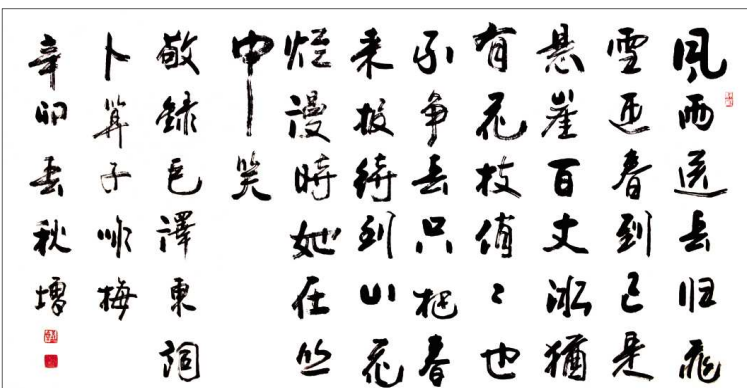 风雨送春归飛
雪迎春到已是
悬崖百丈冰猶
有花枝俏々也
不争春只把春
来报待到山花
烂漫時她在丛
中笑
敬録毛澤東詞
卜算子咏梅
辛卯春秋